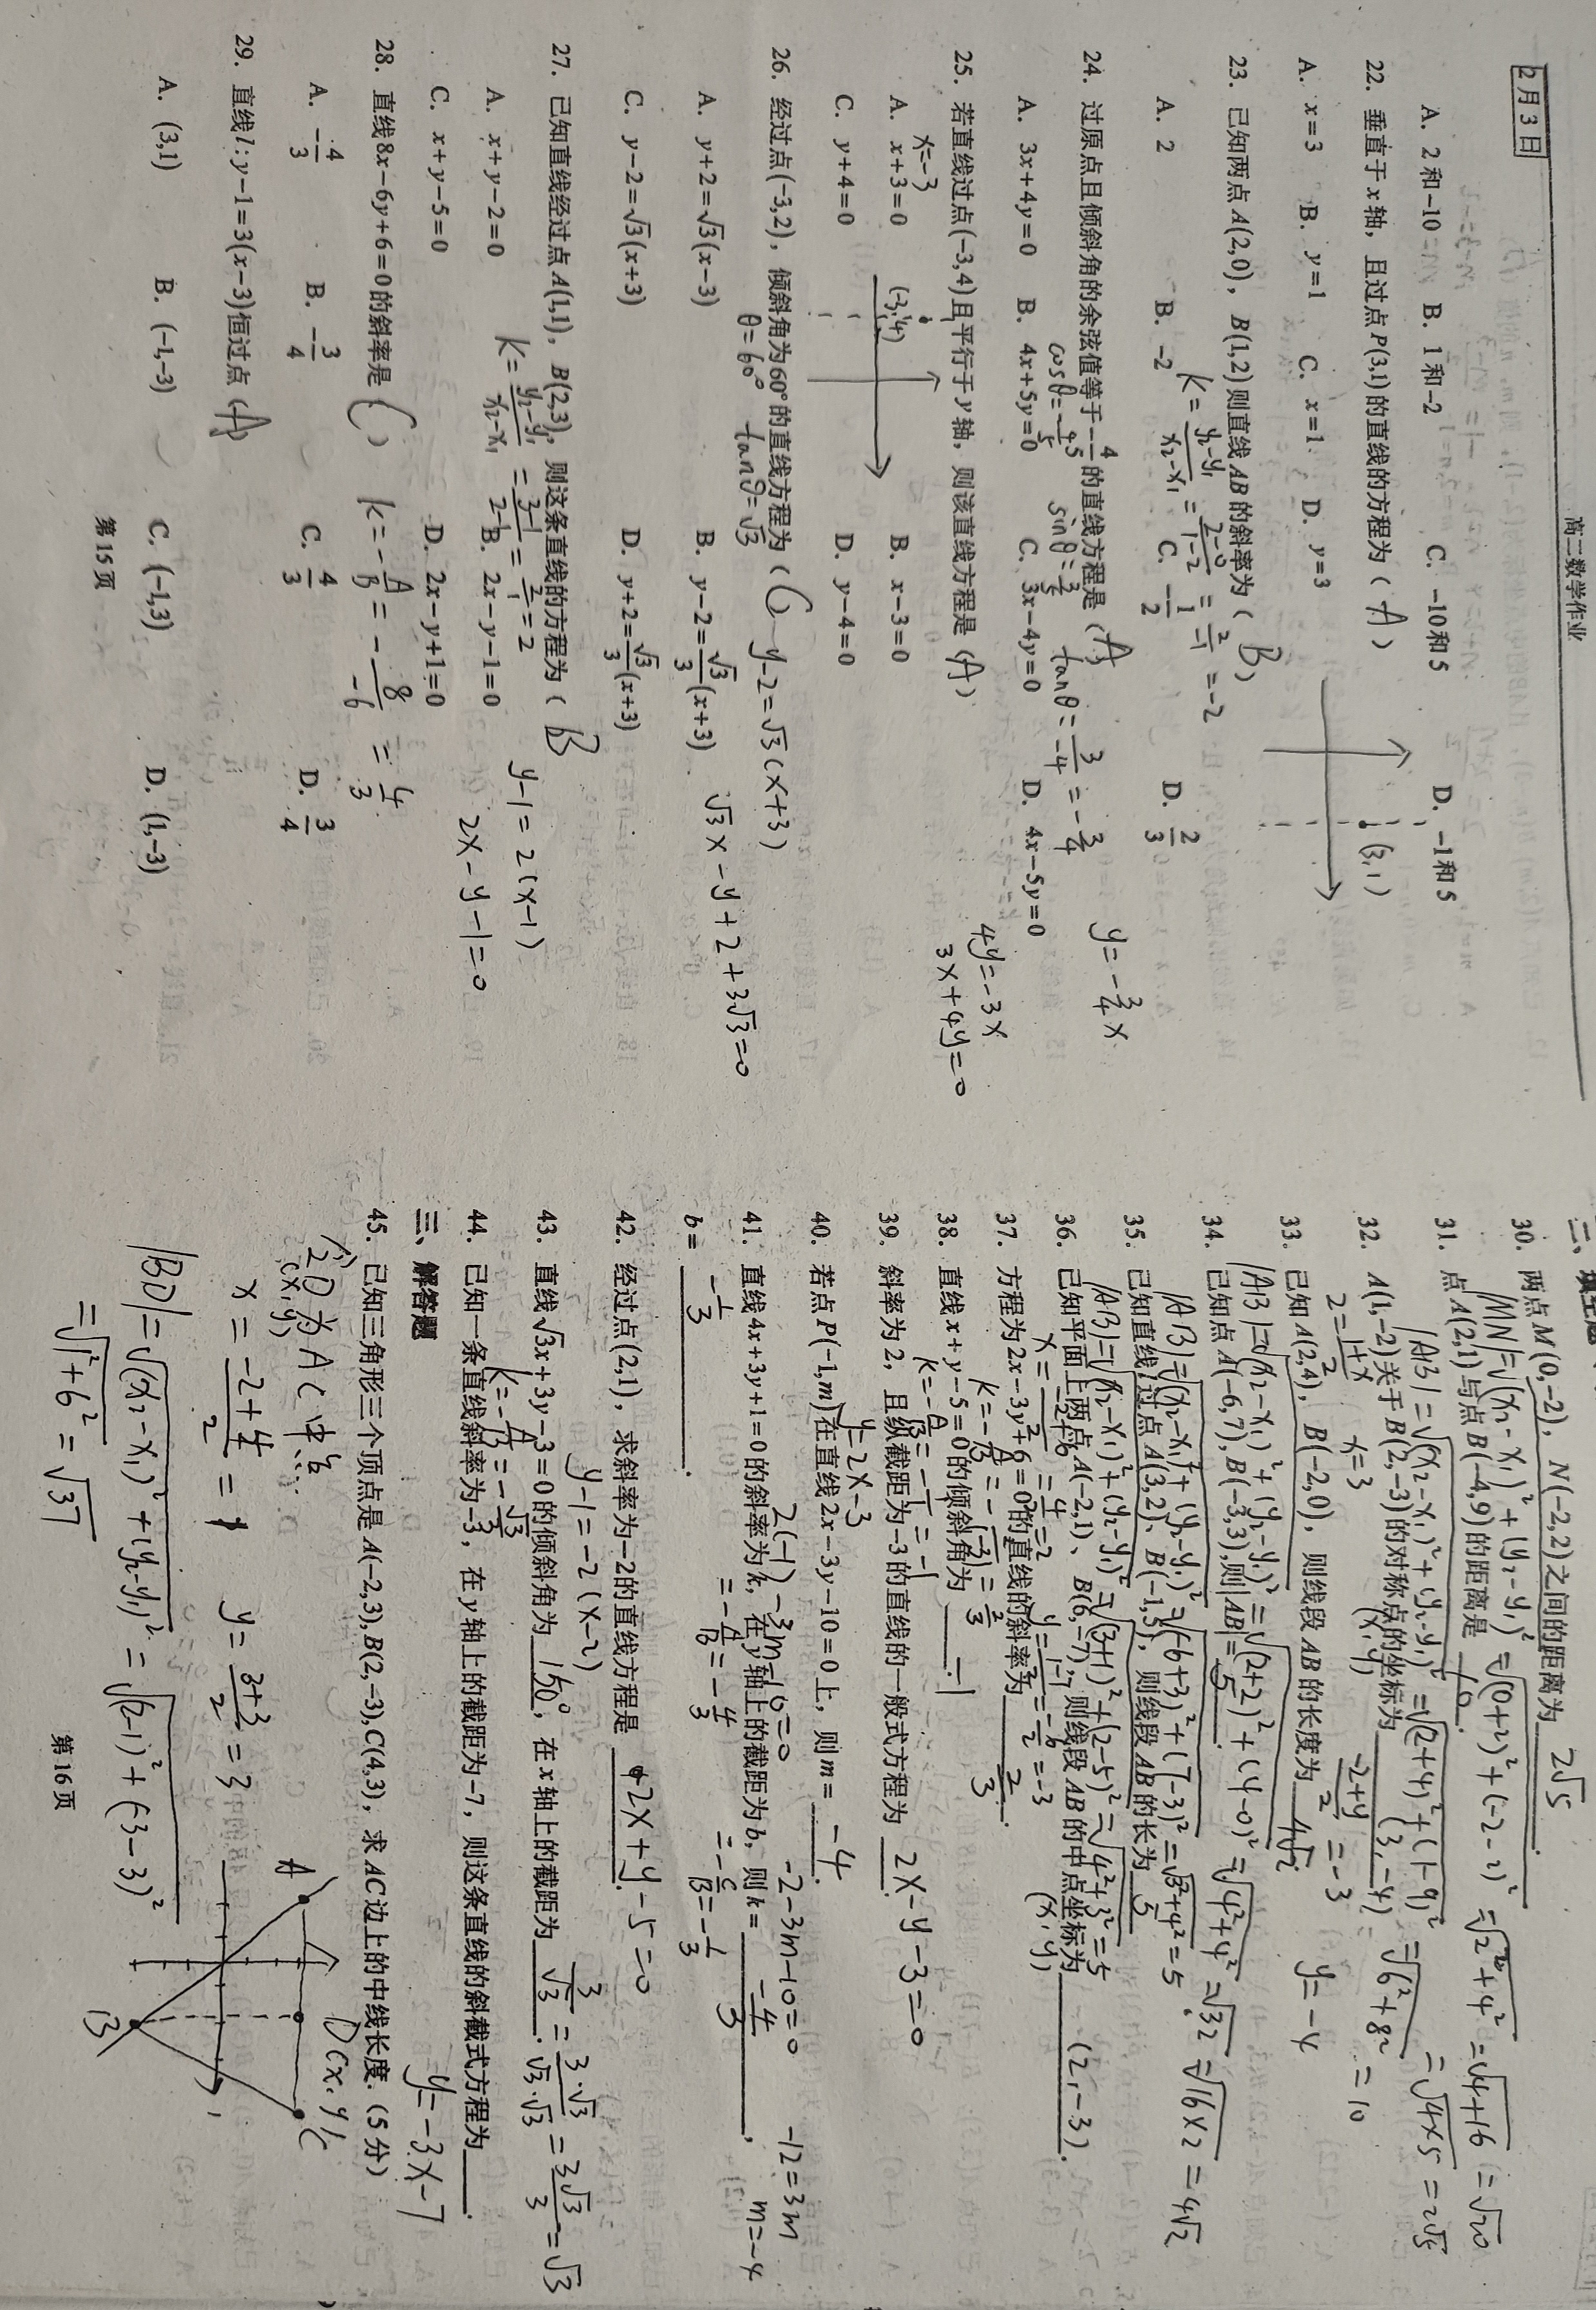 高二数学作业
2月3日
A. 2和-10 B. 1和-2 C. -10和5 D. -1和5
22. 垂直于x轴，且过点P(3,1)的直线的方程为（ A ）
(3,1)
A. x=3 B. y=1 C. x=1 D. y=3
23. 已知两点A(2,0)，B(1,2)则直线AB的斜率为（ B ）
K=\frac{y₂-y₁}{x₂-x₁}=\frac{2-0}{1-2}=\frac{2}{-1}=-2
A. 2 B. -2 C. -\frac{1}{2} D. \frac{2}{3}
24. 过原点且倾斜角的余弦值等于-\frac{4}{5}的直线方程是（A）
y=-\frac{3}{4}x
cosθ=-\frac{4}{5} sinθ=\frac{3}{5} tanθ=\frac{3}{-4}=-\frac{3}{4}
A. 3x+4y=0 B. 4x+5y=0 C. 3x-4y=0 D. 4x-5y=0
4y=-3x
3x+4y=0
25. 若直线过点(-3,4)且平行于y轴，则该直线方程是（A）
x=-3
(-3,4)
A. x+3=0 B. x-3=0
C. y+4=0 D. y-4=0
26. 经过点(-3,2)，倾斜角为60°的直线方程为（C
y-2=√3(x+3)
θ=60° tanθ=√3
√3x-y+2+3√3=0
A. y+2=√3(x-3) B. y-2=\frac{√3}{3}(x+3)
C. y-2=√3(x+3) D. y+2=\frac{√3}{3}(x+3)
27. 已知直线经过点A(1,1)，B(2,3)，则这条直线的方程为（ B
K=\frac{y₂-y₁}{x₂-x₁}=\frac{3-1}{2-1}=\frac{2}{1}=2
y-1=2(x-1)
2x-y-1=0
A. x+y-2=0 B. 2x-y-1=0
C. x+y-5=0 D. 2x-y+1=0
28. 直线8x-6y+6=0的斜率是（C）
k=-\frac{A}{B}=-\frac{8}{-6}=\frac{4}{3}
A. -\frac{4}{3} B. -\frac{3}{4} C. \frac{4}{3} D. \frac{3}{4}
29. 直线l:y-1=3(x-3)恒过点（A）
A. (3,1) B. (-1,-3) C. (-1,3) D. (1,-3)
第15页
30. 两点M(0,-2)，N(-2,2)之间的距离为 2√5.
|MN|=√(x₂-x₁)²+(y₂-y₁)²=√(0+2)²+(-2-2)²=√2²+4²=√4+16=√20
=√4×5=2√5
31. 点A(2,1)与点B(-4,9)的距离是 10.
|AB|=√(x₂-x₁)²+(y₂-y₁)²=√(2+4)²+(1-9)²=√6²+8²=10
32. A(1,-2)关于B(2,-3)的对称点的坐标为 (3,-4)
(x,y)
2=\frac{1+x}{2} x=3 \frac{-2+y}{2}=-3 y=-4
33. 已知A(2,4)，B(-2,0)，则线段AB的长度为 4√2
|AB|=√(x₂-x₁)²+(y₂-y₁)²=√(2+2)²+(4-0)²=√4²+4²=√32=√16×2=4√2
34. 已知点A(-6,7),B(-3,3),则|AB|= 5.
|AB|=√(x₂-x₁)²+(y₂-y₁)²=√(-6+3)²+(7-3)²=√3²+4²=5
35. 已知直线l过点A(3,2)、B(-1,5)，则线段AB的长为 5
|AB|=√(x₂-x₁)²+(y₂-y₁)²=√(3+1)²+(2-5)²=√4²+3²=5
36. 已知平面上两点A(-2,1)、B(6,-7)，则线段AB的中点坐标为 (2,-3).
(x,y)
x=\frac{-2+6}{2}=\frac{4}{2}=2 y=\frac{1-7}{2}=\frac{-6}{2}=-3
37. 方程为2x-3y+6=0的直线的斜率为 \frac{2}{3}.
k=-\frac{A}{B}=-\frac{2}{(-3)}=\frac{2}{3}
38. 直线x+y-5=0的倾斜角为 -1
k=-\frac{A}{B}=-\frac{1}{1}=-1
39. 斜率为2，且纵截距为-3的直线的一般式方程为 2x-y-3=0
y=2x-3
40. 若点P(-1,m)在直线2x-3y-10=0上，则m= -4.
2(-1)-3m-10=0 -2-3m-10=0 -12=3m
m=-4
41. 直线4x+3y+1=0的斜率为k，在y轴上的截距为b，则k= -\frac{4}{3}，
=-\frac{A}{B}=-\frac{4}{3} =-\frac{C}{B}=-\frac{1}{3}
b= -\frac{1}{3}.
42. 经过点(2,1)，求斜率为-2的直线方程是 2x+y-5=0
y-1=-2(x-2)
43. 直线√3x+3y-3=0的倾斜角为 150°，在x轴上的截距为 \frac{3}{√3}=\frac{3·√3}{√3·√3}=\frac{3√3}{3}=√3
k=-\frac{A}{B}=-\frac{√3}{3}
44. 已知一条直线斜率为-3，在y轴上的截距为-7，则这条直线的斜截式方程为.
y=-3x-7
三、解答题
45. 已知三角形三个顶点是A(-2,3),B(2,-3),C(4,3)，求AC边上的中线长度.（5分）
D为AC中点
(x,y)
D(x,y)
A
C
B
x=\frac{-2+4}{2}=1 y=\frac{3+3}{2}=3
|BD|=√(x₂-x₁)²+(y₂-y₁)²=√(2-1)²+(-3-3)²
=√1²+6²=√37
第16页